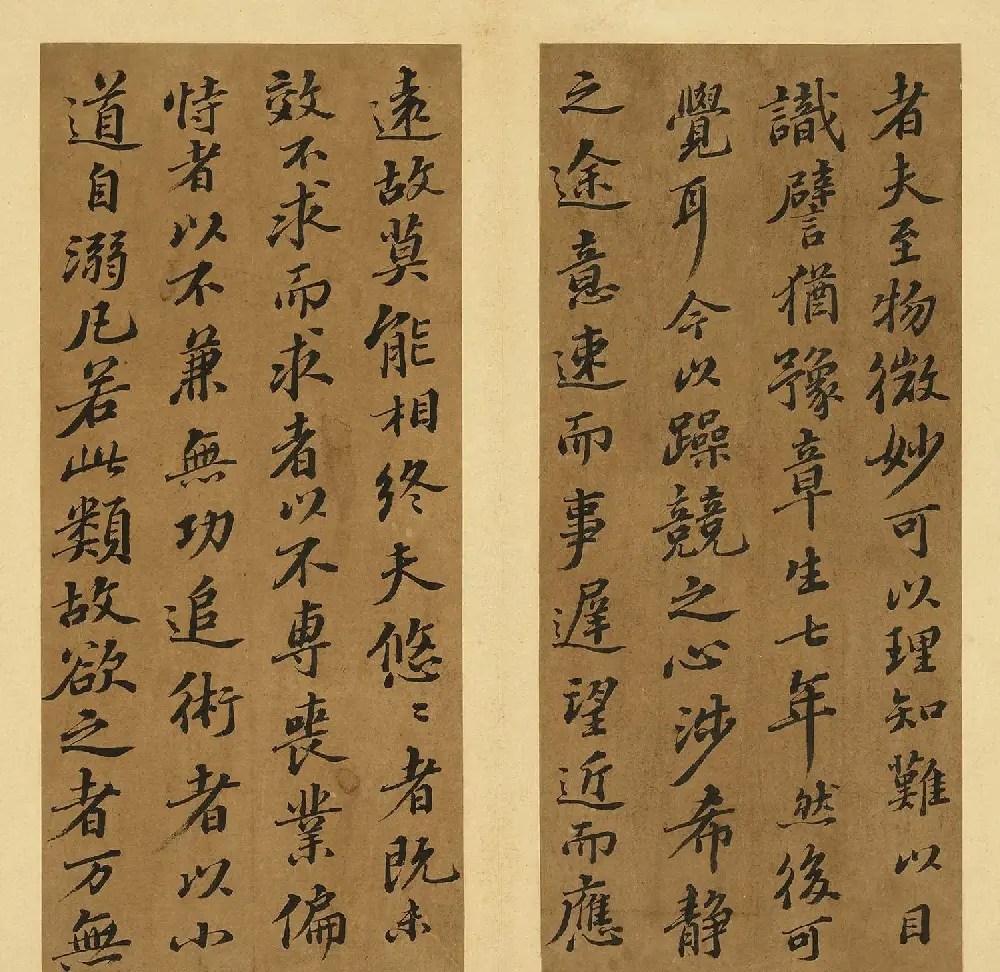 者夫至物微妙可以理知難以目
識譬猶豫章生七年然後可
覺耳今以躁競之心涉希靜
之途意速而事遲望近而應
遠故莫能相終夫悠〻者既未
效不求而求者以不專喪業偏
恃者以不兼無功追術者以小
道自溺凡若此類故欲之者万無